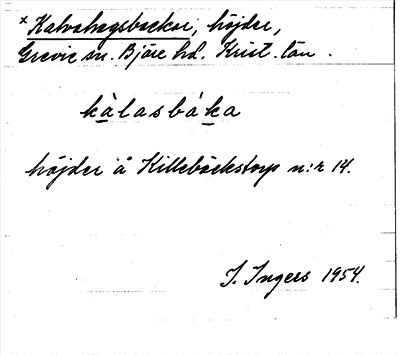 × Kalvahagsbackar, höjder,
Grevie sn. Bjäre hd. Krist. län.
kàlasbáka
höjder å Killebäckstorp n:r 14.
I. Ingers 1954.